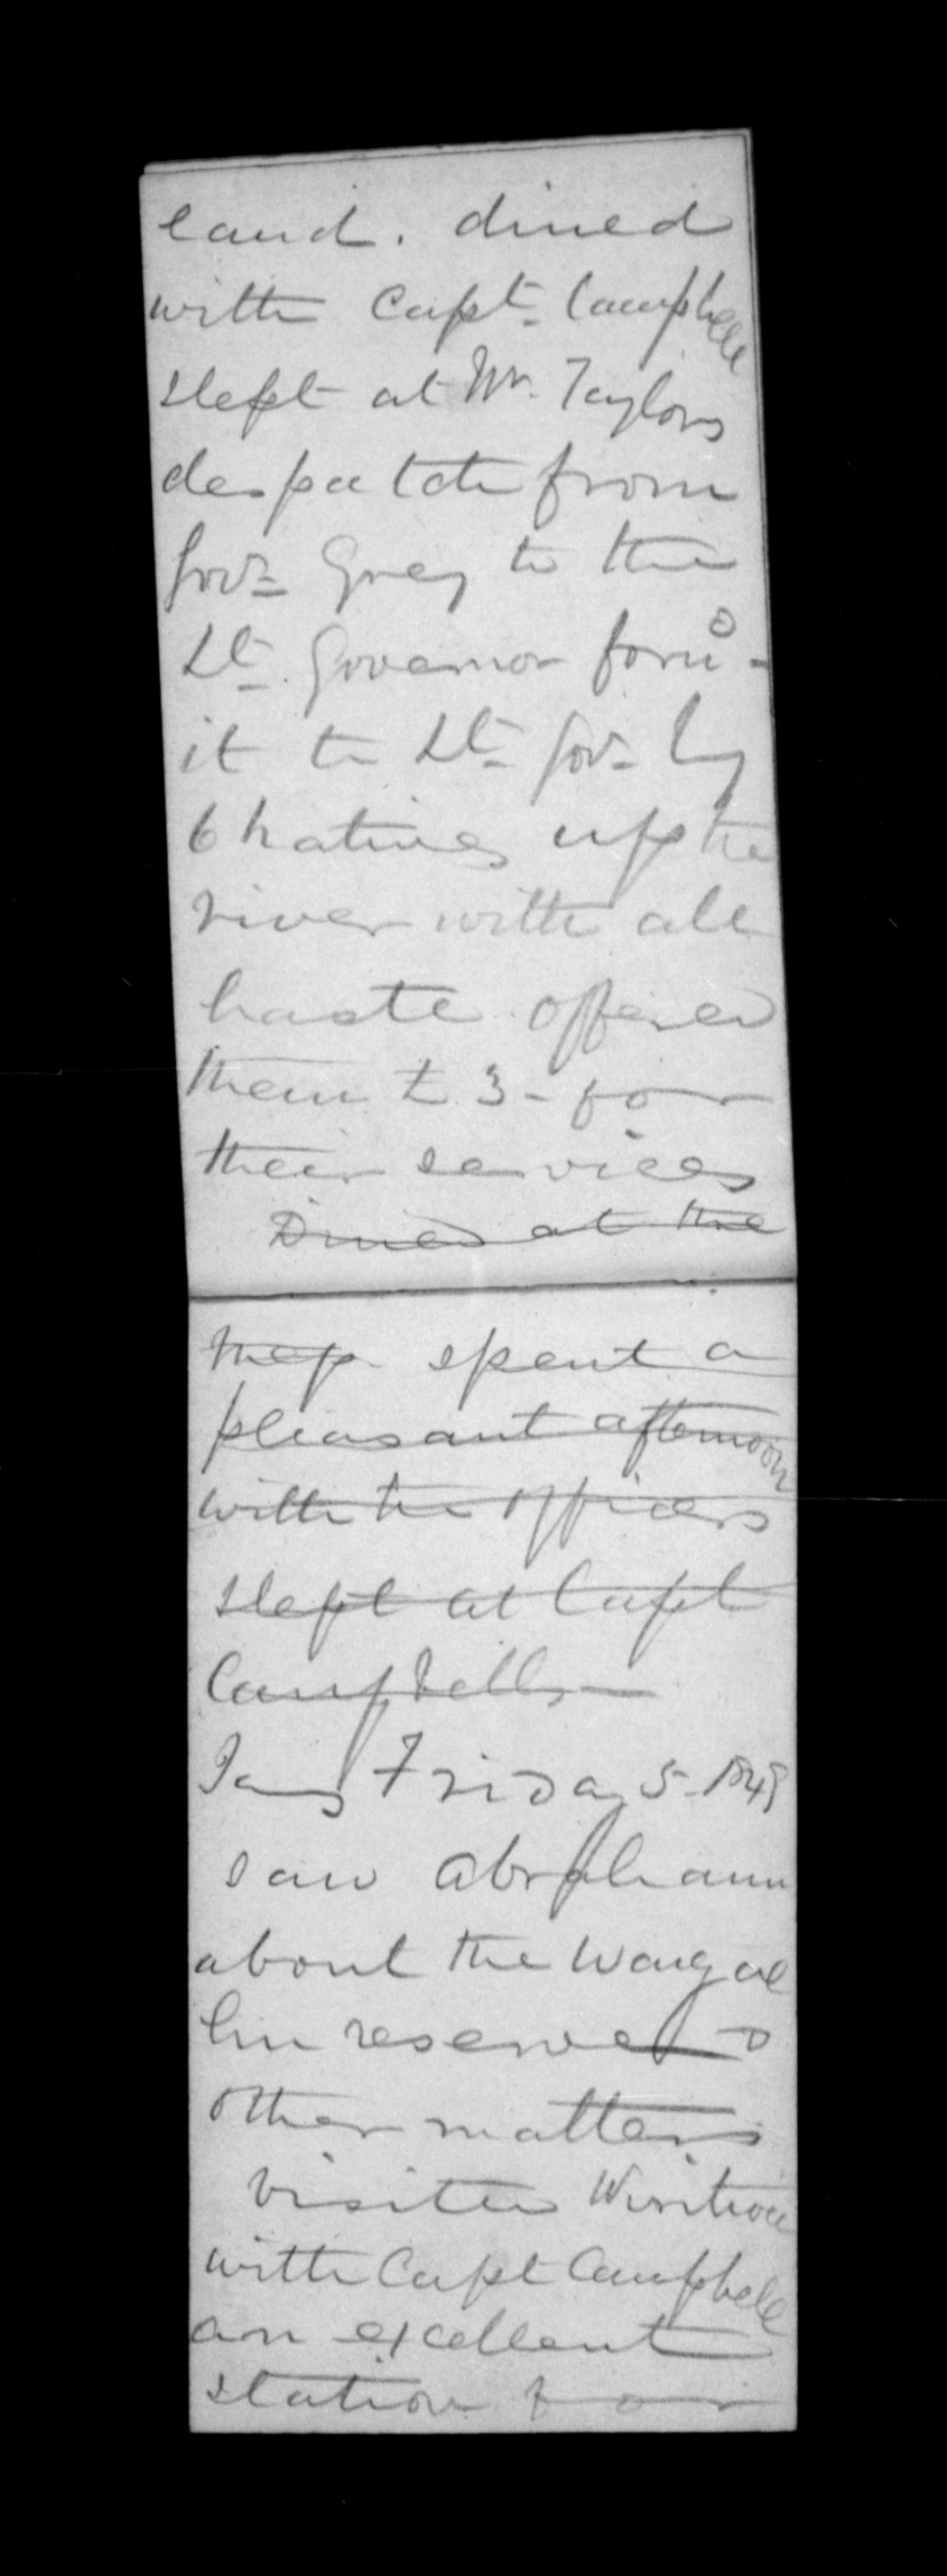 land. dined
with Capt. Campbell
slept at Mr. Taylors
despatch from
Govr. Grey to the
Lt. Governor forwd.
it to Lt. Gov. by
6 natives up the
river with all
haste offered
them £3 - for
their services
Dined at the
mess spent a
pleasant afternoon
with the officers
slept at Capt
Campbells
Jany Friday 5. 1849
saw Abraham
about the
reserve &
other matters
visited
with Capt Campbell
an excellent
station for